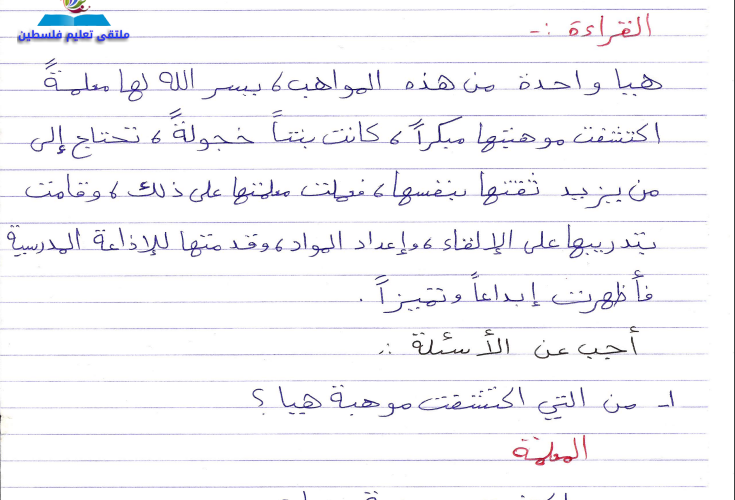 ملتقى تعليم فلسطين
القراءة :-
هيا واحدة من هذه المواهب، يسر الله لها معلمةً
اكتشفت موهبتها مبكراً، كانت بنتاً خجولةً، تحتاج إلى
من يزيد ثقتها بنفسها، فعملت معلمتها على ذلك، وقامت
بتدريبها على الإلقاء، وإعداد المواد، وقدمتها للإذاعة المدرسية
فأظهرت إبداعاً وتميزاً.
أجب عن الأسئلة :-
١- من التي اكتشفت موهبة هيا؟
المعلمة